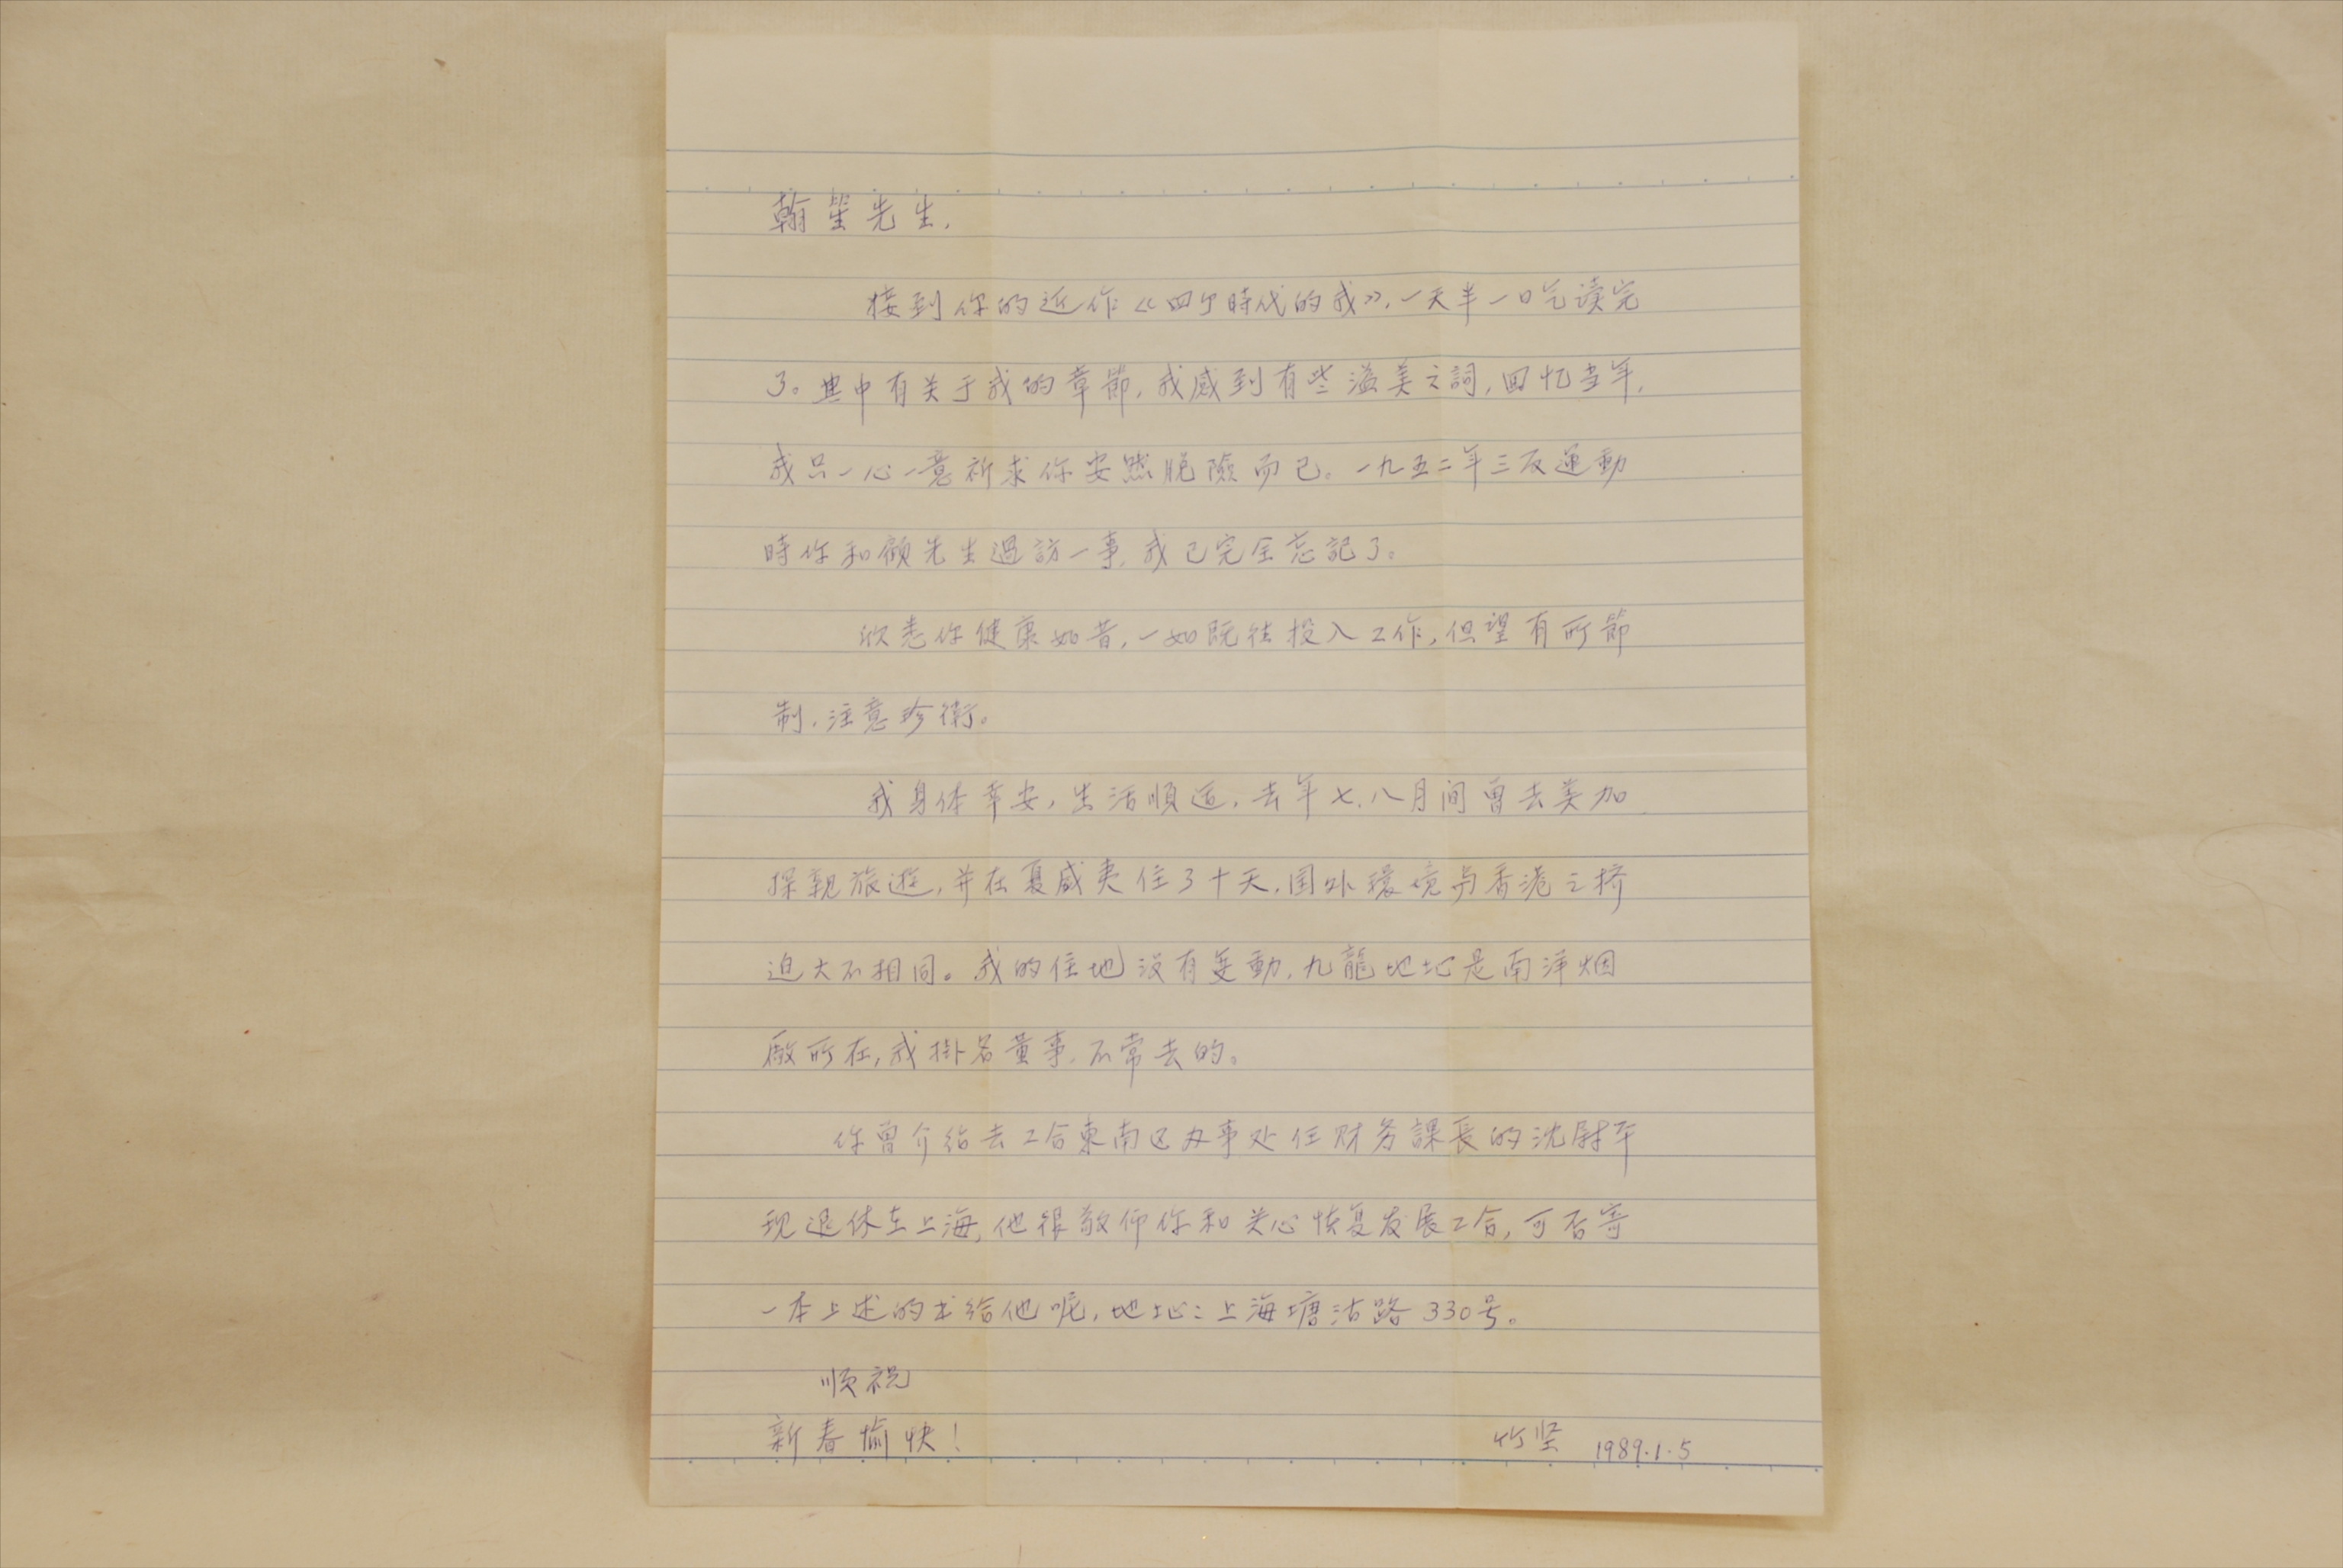 翰笙先生,
接到你的近作《四个時代的我》,一天半一口气读完
了。其中有关于我的章節,我感到有些溢美之詞,回忆当年,
我只一心一意祈求你安然脱險而已。一九五二年三反運動
時你和顧先生過訪一事,我已完全忘記了。
欣悉你健康如昔,一如既往投入工作,但望有所節
制,注意珍衛。
我身体幸安,生活順适,去年七、八月间曾去美加
探親旅遊,并在夏威夷住了十天,国外環境与香港之挤
迫大不相同。我的住地没有変動,九龍地址是南洋烟
廠所在,我掛名董事,不常去的。
你曾介绍去工合東南区办事处任财务課長的沈尉平
现退休在上海,他很敬仰你和关心恢复发展工合,可否寄
一本上述的书给他呢,地址:上海塘沽路330号。
顺祝
新春愉快!
竹坚 1989.1.5